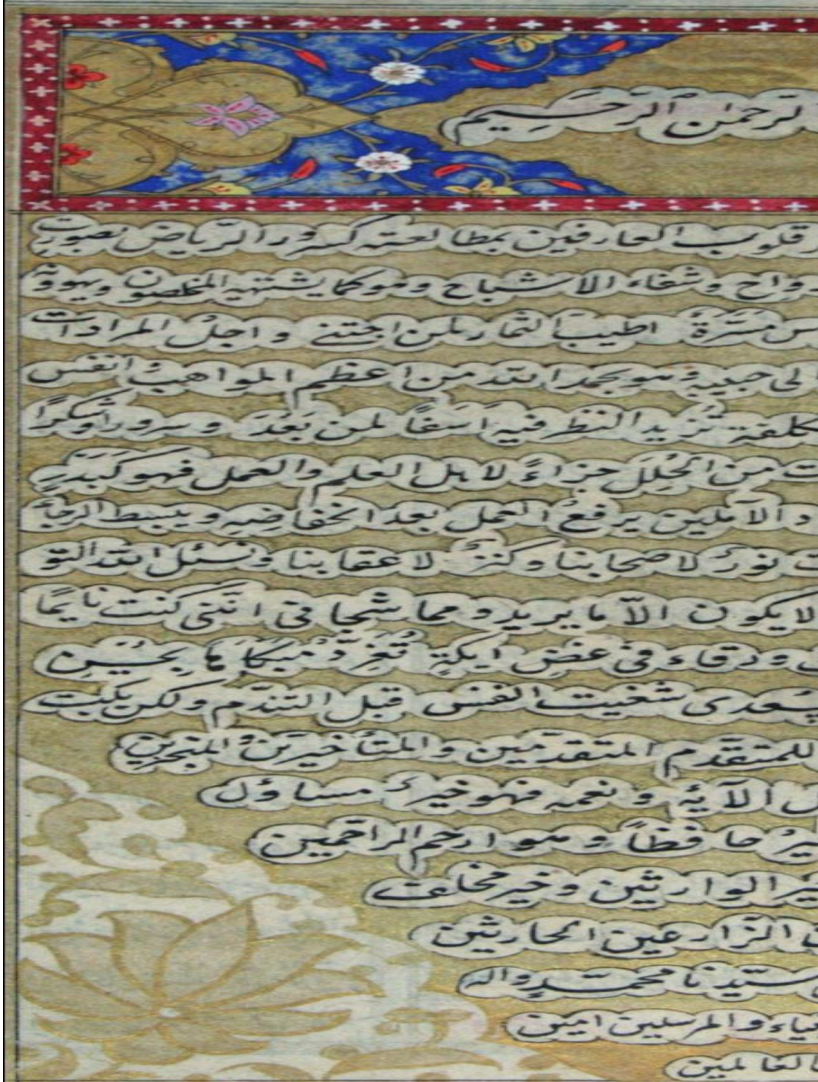 الرحمن الرحيم
قلوب العارفين بمطالعته كسرور الرياض بصوب
واح وشفاء الاشباح وهو كما يشتهيه المغصون ويهوه
مسرّة اطيب الثمار لمن اجتنى واجل المرادات
الى حبيبة وهو بحمد الله من اعظم المواهب انفس
كلفة تزيد النظر فيه اسفاً لمن بعد وسروراً وشكراً
من الحلل جزاءً لاهل العلم والعمل فهو كبد
والآملين يرفع العمل بعد انخفاضه ويبسط الرجا
نور لاصحابنا وكنز لاعقابنا ونسئل الله التو
لا يكون الّا ما يريد ومما شجانى اننى كنت نايماً
ورقاء فى غصن ايكة تغرّد مبكاها بحسن
بسعدى شفيت النفس قبل التندّم ولكن بكت
للمتقدّم المتقدّمين والمتأخيرين والمنجزين
الآية ونعمه فهو خير مسأول
حافظاً وهو ارحم الراحمين
خير الوارثين وخير مخلف
الزارعين الحارثين
سيّدنا محمّد واله
والمرسلين امين
العالمين